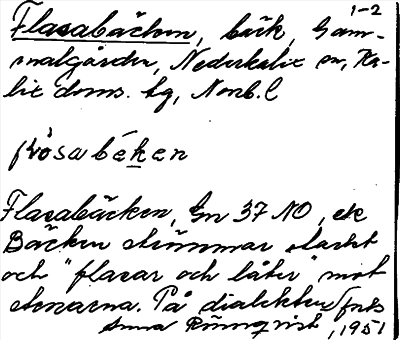 1-2
Flasabäcken, bäck, Gam-
malgården, Nederkalix sn, Ka-
lix doms. tg, Norrb. l
flȯsabéken
Flasabäcken, Gn 37 NO, ek
Bäcken strömmar starkt
och "flasar och låter" mot
stenarna. På dialekten
Anna Rönnqvist, 1951